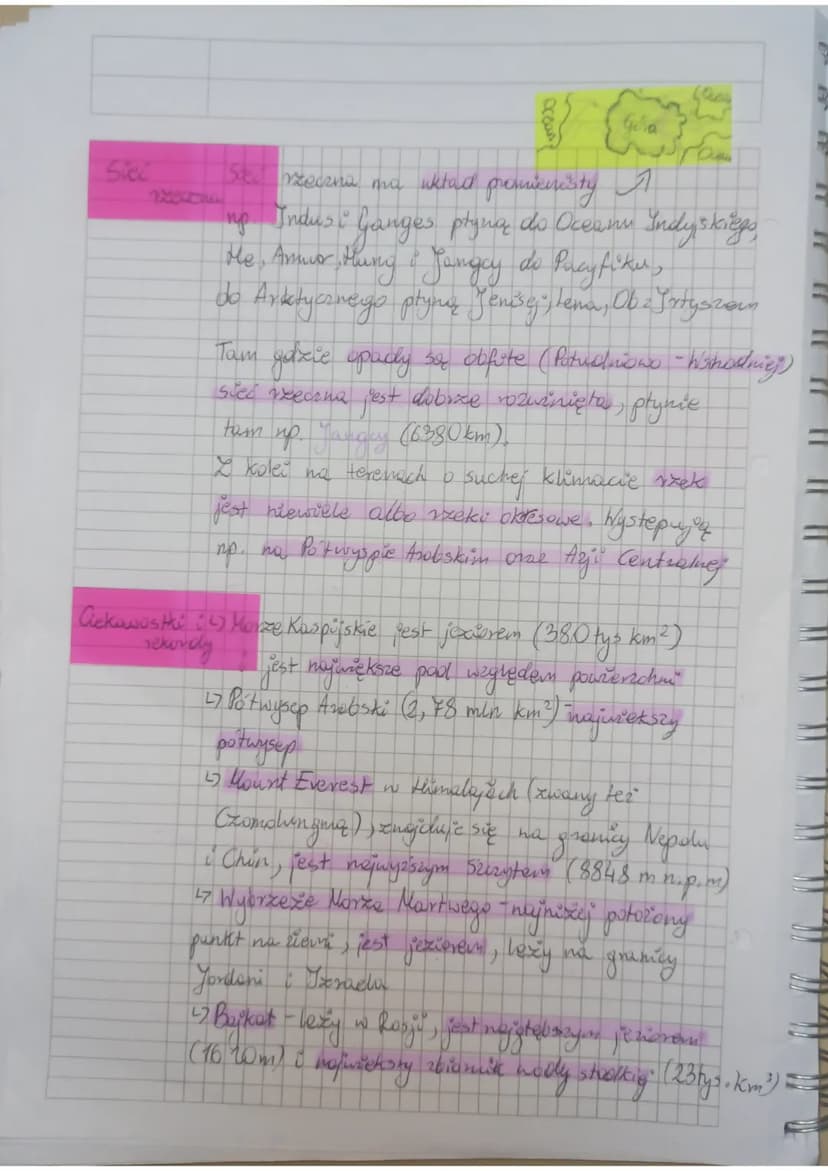 Ocean
Góra
Ocea
Ocea
Sieć
rzeczna
Sieć rzeczna ma układ promienisty
np Indus i Ganges płyną do Oceanu Indyjskiego,
He, Amur, Hung i Jangcy do Pacyfiku,
do Arktycznego płyną Jenisej, Lena, Ob z Irtyszem
Tam gdzie opady są obfite (Południowo - Wshodniej)
sieć rzeczna jest dobrze rozwinięta, płynie
tam np. Jangcy (6380km).
Z kolei na terenach o suchej klimacie rzek
jest niewiele albo rzeki okresowe. Występują
np. na Półwyspie Arabskim oraz Azji Centralnej
Ciekawostki i
rekordy
↳ Morze Kaspijskie jest jeziorem (380 tyś km²)
jest największe pod względem powierzchni
↳ Półwysep Arabski (2,78 mln km²) - największy
półwysep
↳ Mount Everest w Himalajach (zwany też
Czomolungmą), znajduje się na granicy Nepalu
i Chin, jest najwyższym szczytem (8848 m n.p.m)
↳ Wybrzeże Morza Martwego - najniżej położony
punkt na ziemi, jest jeziorem, leży na granicy
Jordani i Izraela
↳ Bajkał - leży w Rosji, jest najgłębszym jeziorem
(1620m) i największy zbiornik wody słodkiej (23tyś. km³)